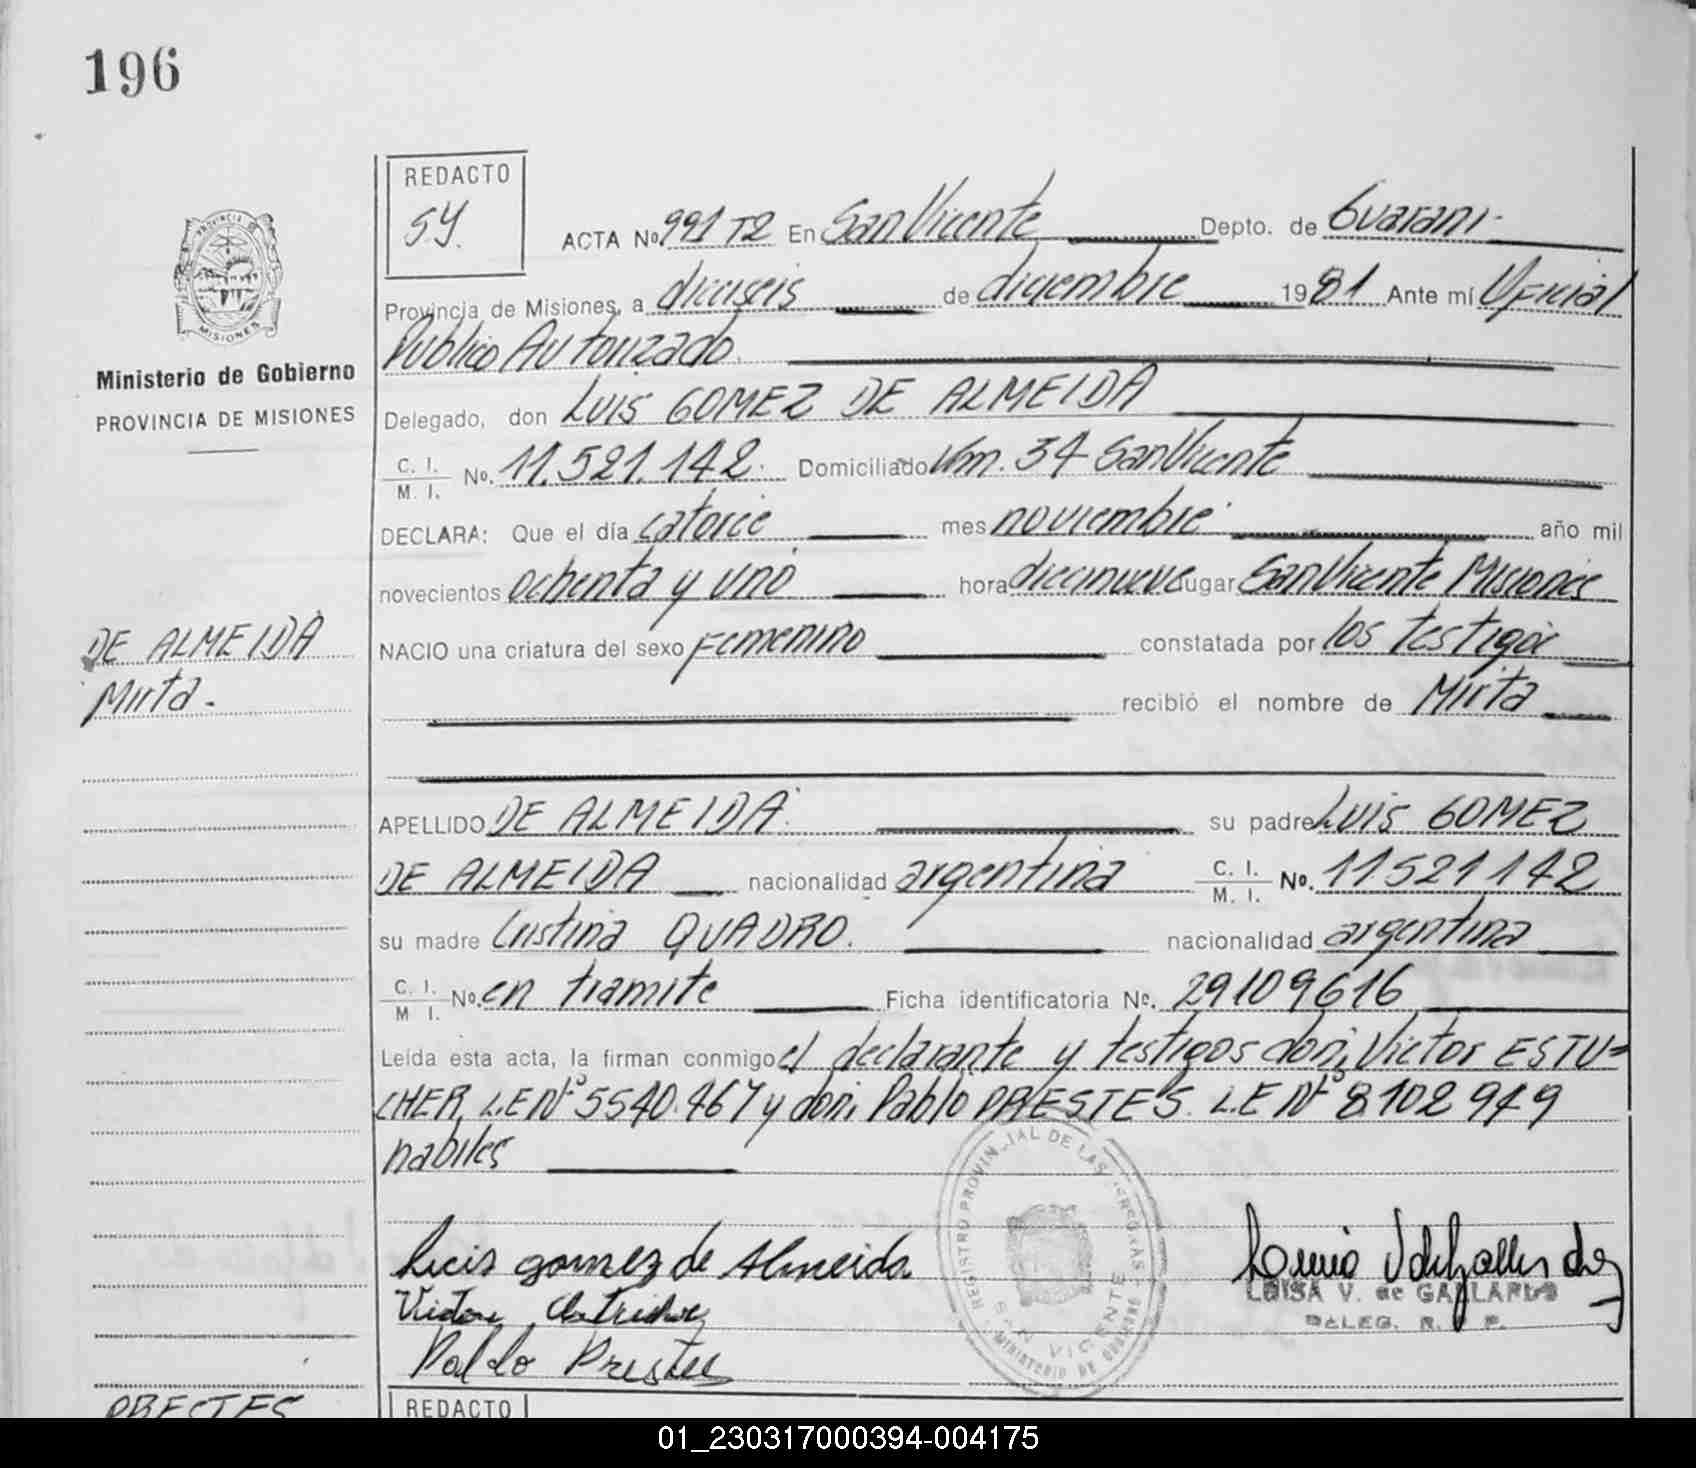 196
REDACTO
S.Y.
ACTA No 991 T2 En San Vicente Depto. de Guarani
Provincia de Misiones, a dieciseis de diciembre 1981 Ante mí Oficial
Publico Autorizado.
Delegado, don LUIS GOMEZ DE ALMEIDA
C. I. / M. I. No. 11.521.142. Domiciliado Km. 34 San Vicente
DECLARA: Que el día catorce mes noviembre año mil
novecientos ochenta y uno hora diecinueve lugar San Vicente Misiones
NACIO una criatura del sexo Femenino constatada por los testigos
recibió el nombre de Mirta
APELLIDO DE ALMEIDA su padre LUIS GOMEZ
DE ALMEIDA nacionalidad argentina C. I. / M. I. No. 11521142
su madre Cristina QUADRO. nacionalidad argentina
C. I. / M I. No. en tramite Ficha identificatoria No. 29109616
Leída esta acta, la firman conmigo el declarante y testigos don, Victor ESTU-
CHER, L.E Nº 5540.467 y don, Pablo PRESTES. L.E Nº 8.102 949
habiles
Luis gomez de Almeida
Victor
Pablo Prestes
REGISTRO PROVINCIAL DE LAS
SAN VICENTE
MINISTERIO DE GOBIERNO
LUISA V. de GALLARDO
DELEG. R. P.
PROVINCIA
MISIONES
Ministerio de Gobierno
PROVINCIA DE MISIONES
DE ALMEIDA
Mirta.
PRESTES
REDACTO
01_230317000394-004175